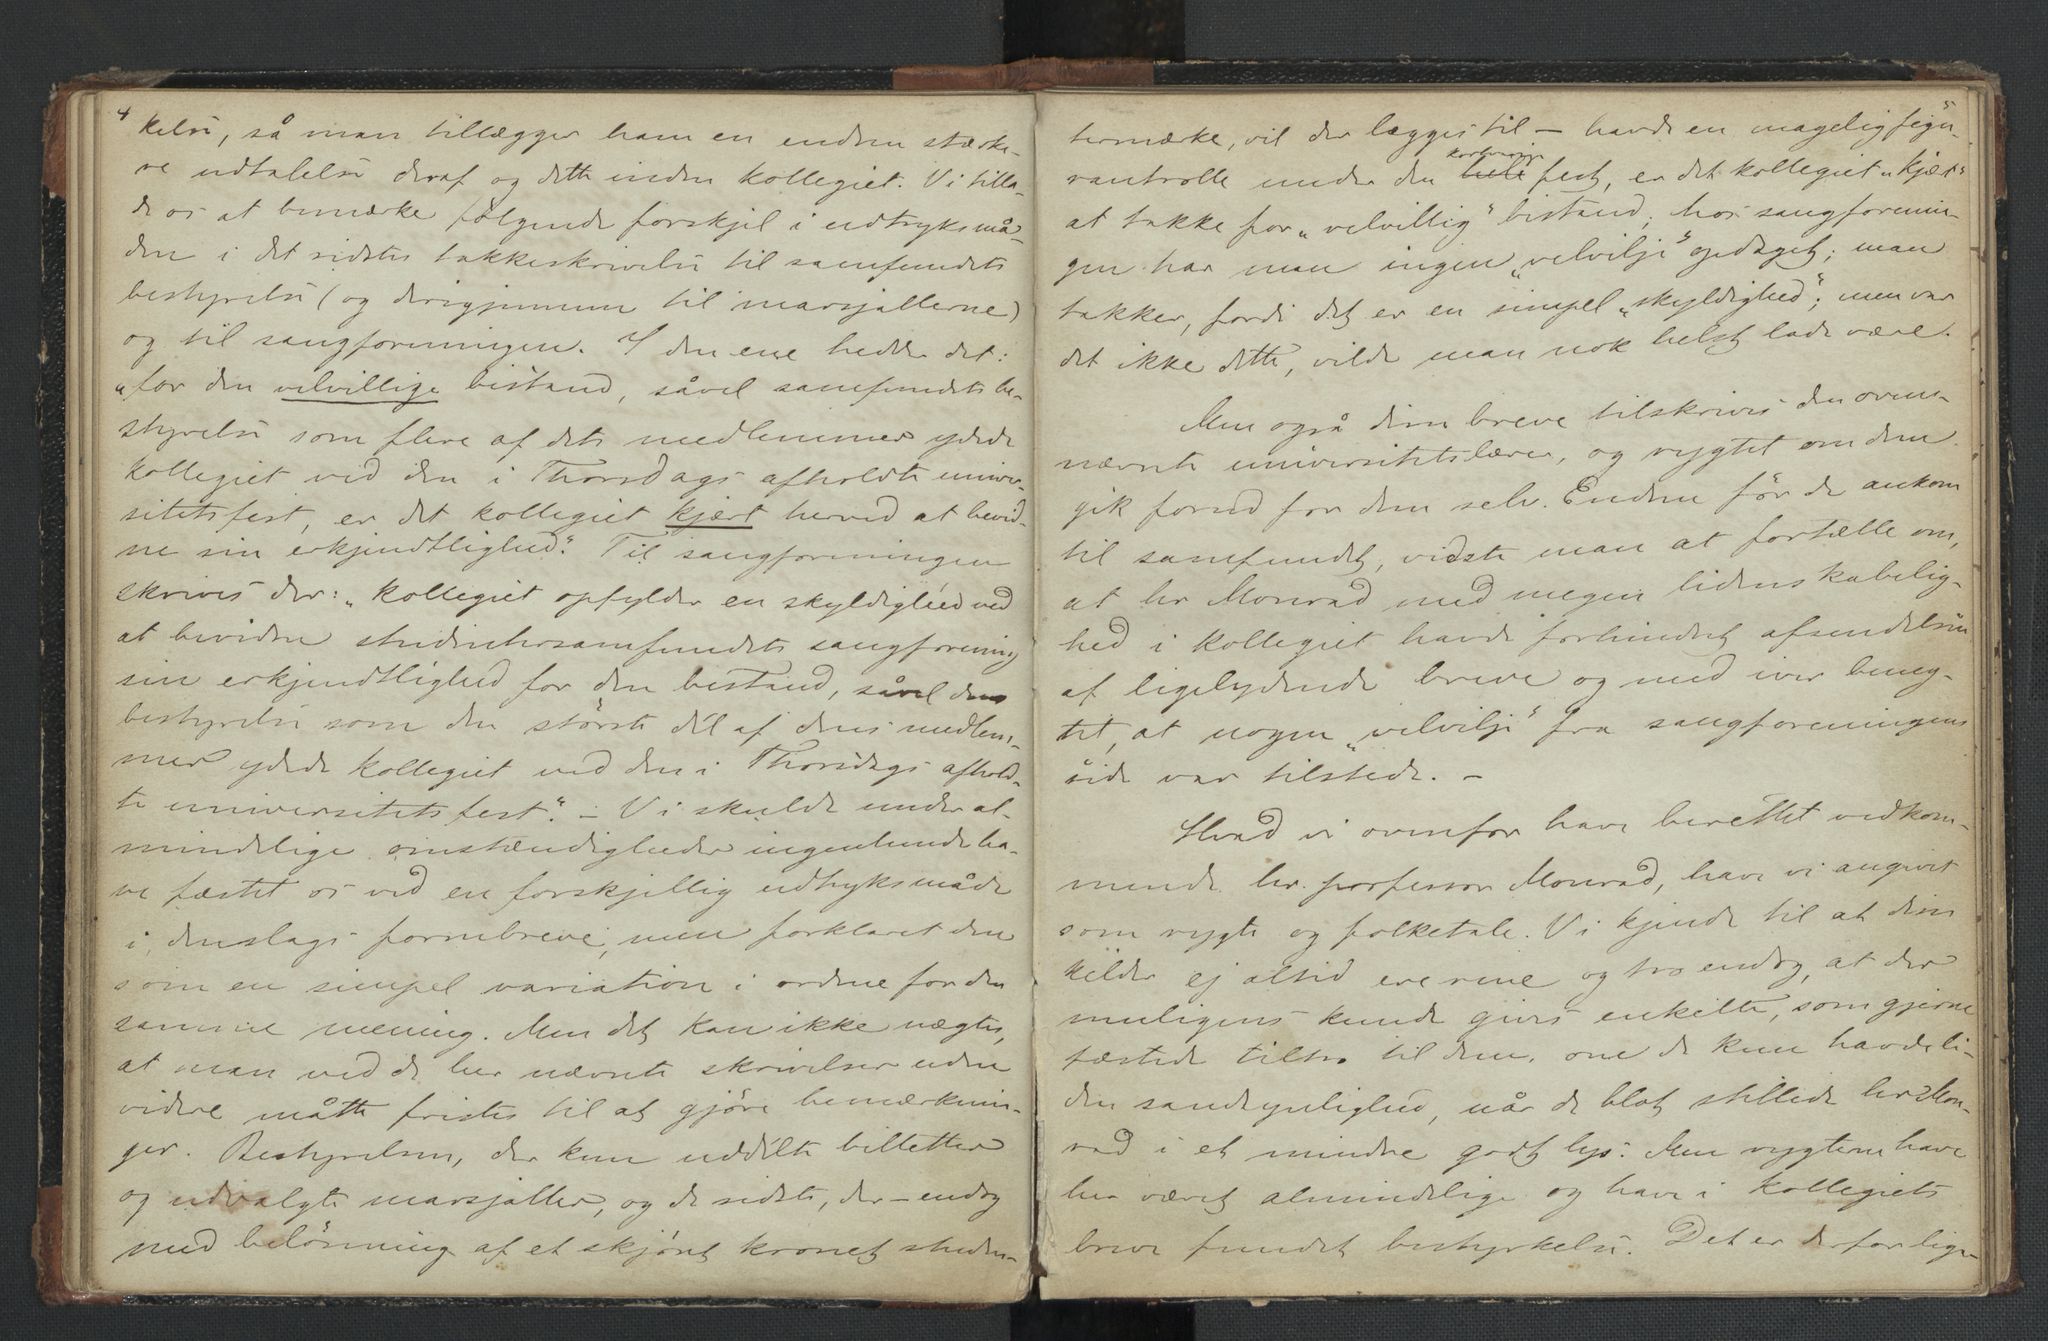 4
kelse, så man tillægger ham en endnu stærke-
re udtalelse deraf og dette inden kollegiet. Vi tilla-
de os at bemærke følgende forskjel i udtryksmå-
den i det sidste takkeskrivelse til samfundets
bestyrelse (og derigjennem til marsjallerne)
og til sangforeningen. I den ene hedder det:
„for den velvillige bistand, såvel samfundets be-
styrelse som flere af dets medlemmer ydede
kollegiet ved den i Thorsdags afholdte univer-
sitetsfest, er det kollegiet kjært herved at bevid-
ne sin erkjendtlighed“. Til sangforeningen
skrives der: „kollegiet opfylder en skyldighed ved
at bevidne studentersamfundets sangforening
sin erkjendtlighed for den bistand, såvel dens
bestyrelse som den störste del af dens medlem-
mer ydede kollegiet ved den i Thorsdags afhold-
te universitetsfest“. – Vi skulde under al-
mindelige omstændigheder ingenlunde ha-
ve fæstet os ved en forskjellig udtryksmåde
i denslags formbreve, men forklaret den
som en simpel variation i ordene for den
samme mening. Men det kan ikke nægtes,
at man ved de her nævnte skrivelser uden
videre måtte fristes til at gjöre bemærknin-
ger. Bestyrelsen, der kun uddelte billetter
og udvalgte marsjaller, og de sidste, der – endog
med belönning af et skjönt kronet studen-
5
termærke, vil der lægges til – havde en magelig figu-
rantrolle under den hele fest, er det kollegiet „kjært“
at takke for „velvillig“ bistand; hos sangforenin-
gen har man ingen „velvilje“ opdaget; man
takker, fordi det er en simpel „skyldighed“; men var
det ikke dette, vilde man nok helst lade være.
Men også disse breve tilskrives den oven-
nævnte universitetslærer, og rygtet om dem
gik forud for dem selv. Endnu för de ankom
til samfundet, vidste man at fortælle om,
at hr Monrad med megen lidenskabelig-
hed i kollegiet havde forhindret afsendelsen
af ligelydende breve og med iver beneg-
tet, at nogen „velvilje“ fra sangforeningens
side var tilstede. –
Hvad vi ovenfor have berettet vedkom-
mende hr. professor Monrad, have vi angivet
som rygte og folketale. Vi kjende til at disse
kilder ej altid ere rene og tro endog, at der
muligens kunde gives enkelte, som gjerne
fæstede tiltro til dem, om de kun havde li-
den sandsynlighed, når de blot stillede hr Mon-
rad i et mindre godt lys. Men rygterne have
her været almindelige og have i kollegiets
breve fundet bestyrkelse. Det er derfor lige-